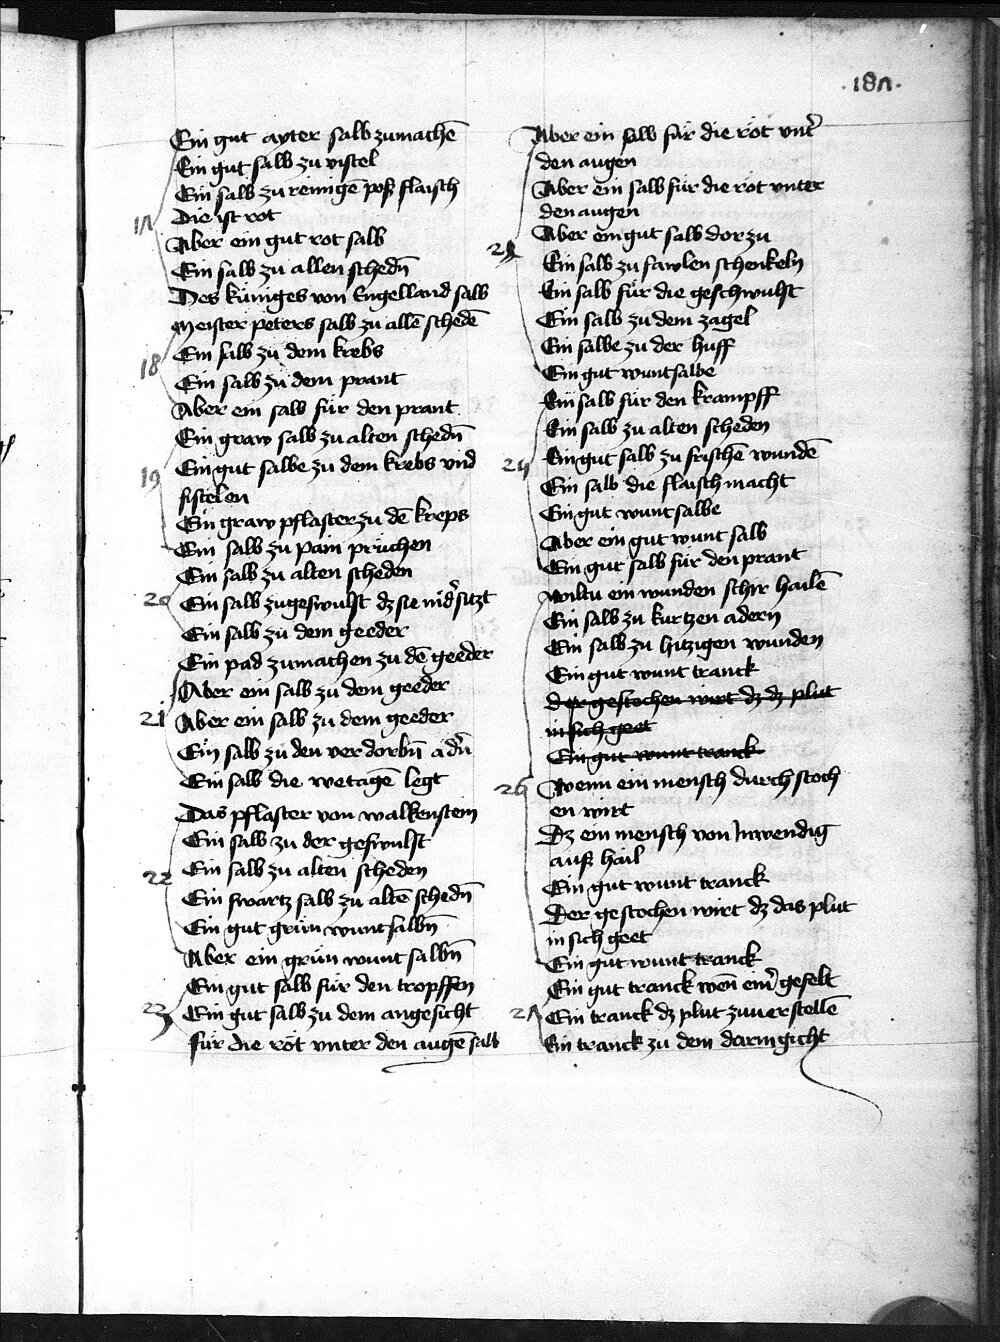 ·187·
Ein gut ayter salb zumachē
Ein gut salb zu vistel
Ein salb zu reinigē poß flaisch
Die ist rot
17
Aber ein gut rot salb
Ein salb zu allen schedn̄
Des kúniges von Engelland salb
Meister peters salb zu allē schedē
18
Ein salb zu dem krebs
Ein salb zu dem prant
Aber ein salb für den prant
Ein graw salb zu alten schedn̄
19
Ein gut salbe zu dem krebs vnd
fistelen
Ein graw pflaster zu dē kreps
Ein salb zu pain prüchen
Ein salb zu alten scheden
20
Ein salb zu geswulst dz sie nid͛ sitzt
Ein salb zu dem geeder
Ein pad zumachen zu dē geeder
Aber ein salb zu dem geeder
21
Aber ein salb zu dem geeder
Ein salb zu den verdorbn̄ ad͛n
Ein salb die wetagē legt
Das pflaster von walkenstein
Ein salb zu der geswulst
22
Ein salb zu alten scheden
Ein swartz salb zu altē schedn̄
Ein gut grün wunt salbn̄
Aber ein grün wunt salbn̄
Ein gut salb für den tropffen
23
Ein gut salb zu dem angesicht
für die röt vnter den augē salb
Aber ein salb für die röt vnt͛
den augen
Aber ein salb für die röt vnter
den augen
Aber ein gut salb dor zu
Ein salb zu fawlen schenkeln
Ein salb für die geschwulst
Ein salb zu dem zagel
Ein salbe zu der huff
Ein gut wunt salbe
Ein salb für den krampff
Ein salb zu alten scheden
Ein gut salb zu frischē wundē
Ein salb die flaisch macht
Ein gut wunt salbe
Aber ein gut wunt salb
Ein gut salb für den prant
Wiltu ein wunden schir hailē
Ein salb zu kurtzen adern
Ein salb zu hitzigen wunden
Ein gut wunt tranck
der gestochen wirt dz dz plut
in sich geet
Ein gut wunt tranck
26
Wenn ein mensch durch stoch
en wirt
Dz ein mensch von Inwendig
auß hail
Ein gut wunt tranck
Der gestochen wirt dz das plut
in sich geet
Ein gut wunt tranck
Ein gut tranck wen̄ ein͛ geselt
27
Ein tranck dz plut zuuerstellē
Ein tranck zu dem darmgicht